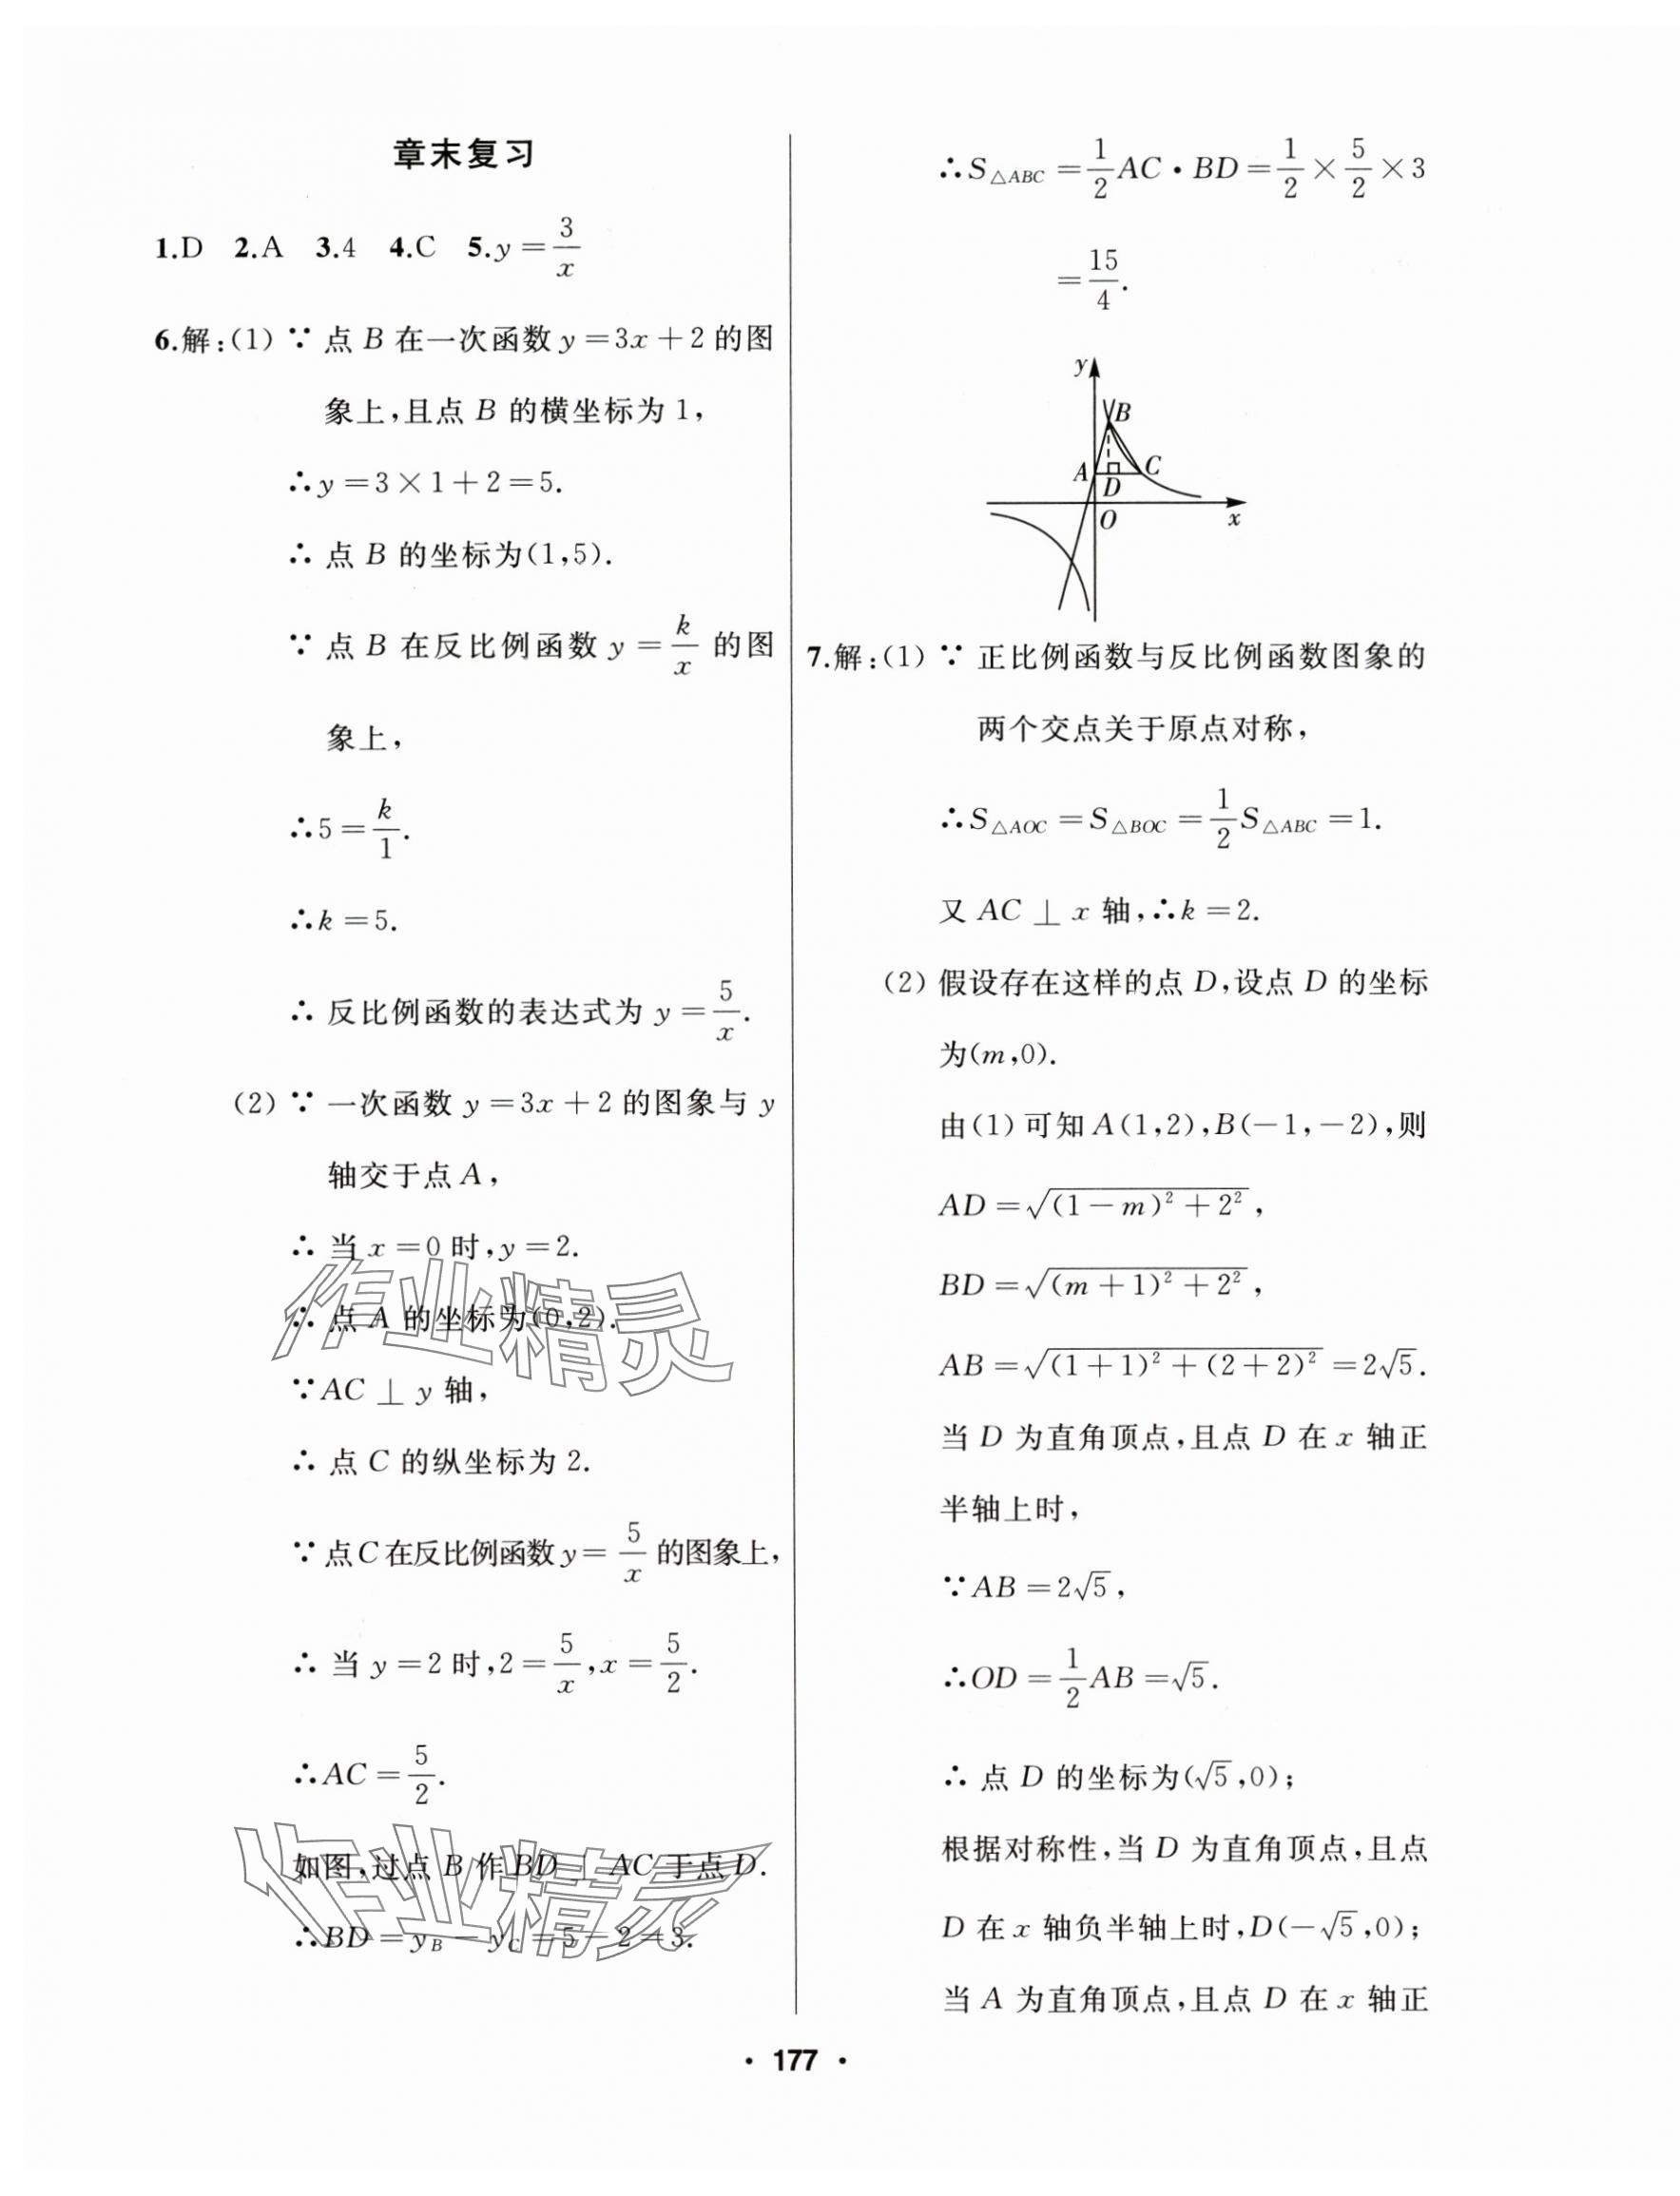 章末复习
1.D 2.A 3.4 4.C 5.y=3/x
6.解:(1)∵点B在一次函数y=3x+2的图
象上,且点B的横坐标为1,
∴y=3×1+2=5.
∴点B的坐标为(1,5).
∵点B在反比例函数y=k/x的图
象上,
∴5=k/1.
∴k=5.
∴反比例函数的表达式为y=5/x.
(2)∵一次函数y=3x+2的图象与y
轴交于点A,
∴当x=0时,y=2.
∴点A的坐标为(0,2).
∵AC⊥y轴,
∴点C的纵坐标为2.
∵点C在反比例函数y=5/x的图象上,
∴当y=2时,2=5/x,x=5/2.
∴AC=5/2.
如图,过点B作BD⊥AC于点D.
∴BD=y_B-y_C=5-2=3.
∴S△ABC=1/2AC·BD=1/2×5/2×3
=15/4.
y
B
A
C
D
O
x
7.解:(1)∵正比例函数与反比例函数图象的
两个交点关于原点对称,
∴S△AOC=S△BOC=1/2S△ABC=1.
又AC⊥x轴,∴k=2.
(2)假设存在这样的点D,设点D的坐标
为(m,0).
由(1)可知A(1,2),B(-1,-2),则
AD=√((1-m)²+2²),
BD=√((m+1)²+2²),
AB=√((1+1)²+(2+2)²)=2√5.
当D为直角顶点,且点D在x轴正
半轴上时,
∵AB=2√5,
∴OD=1/2AB=√5.
∴点D的坐标为(√5,0);
根据对称性,当D为直角顶点,且点
D在x轴负半轴上时,D(-√5,0);
当A为直角顶点,且点D在x轴正
·177·
作业精灵
作业精灵